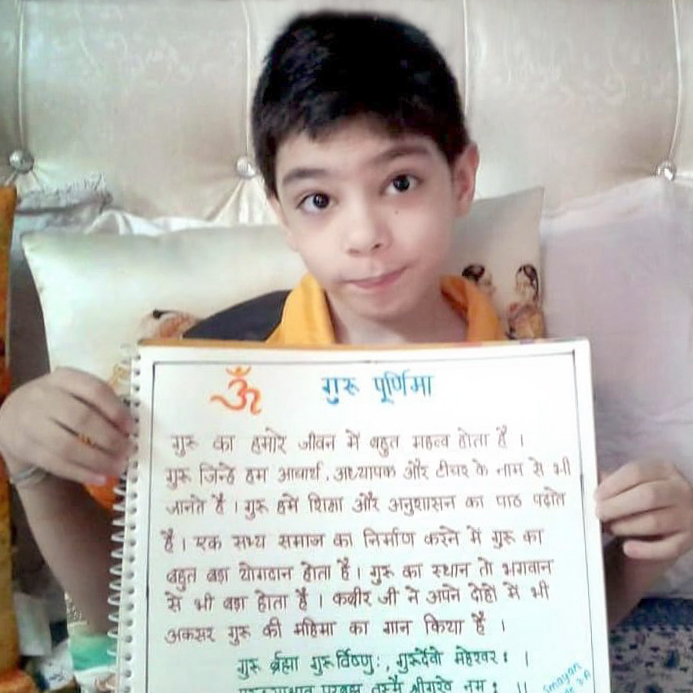 ॐ गुरू पूर्णिमा
गुरू का हमारे जीवन में बहुत महत्व होता है ।
गुरू जिन्हे हम आचार्य, अध्यापक और टीचर के नाम से भी
जानते है । गुरू हमें शिक्षा और अनुशासन का पाठ पढ़ाते
है । एक सभ्य समाज का निर्माण करने में गुरू का
बहुत बड़ा योगदान होता है । गुरू का स्थान तो भगवान
से भी बड़ा होता है । कबीर जी ने अपने दोहों में भी
अकसर गुरू की महिमा का गान किया है ।
गुरू र्ब्रह्मा गुरू र्विष्णुः, गुरुर्देवो महेश्वरः ।
परब्रह्म तस्मै श्रीगुरवे नमः ॥
Smayan
3A